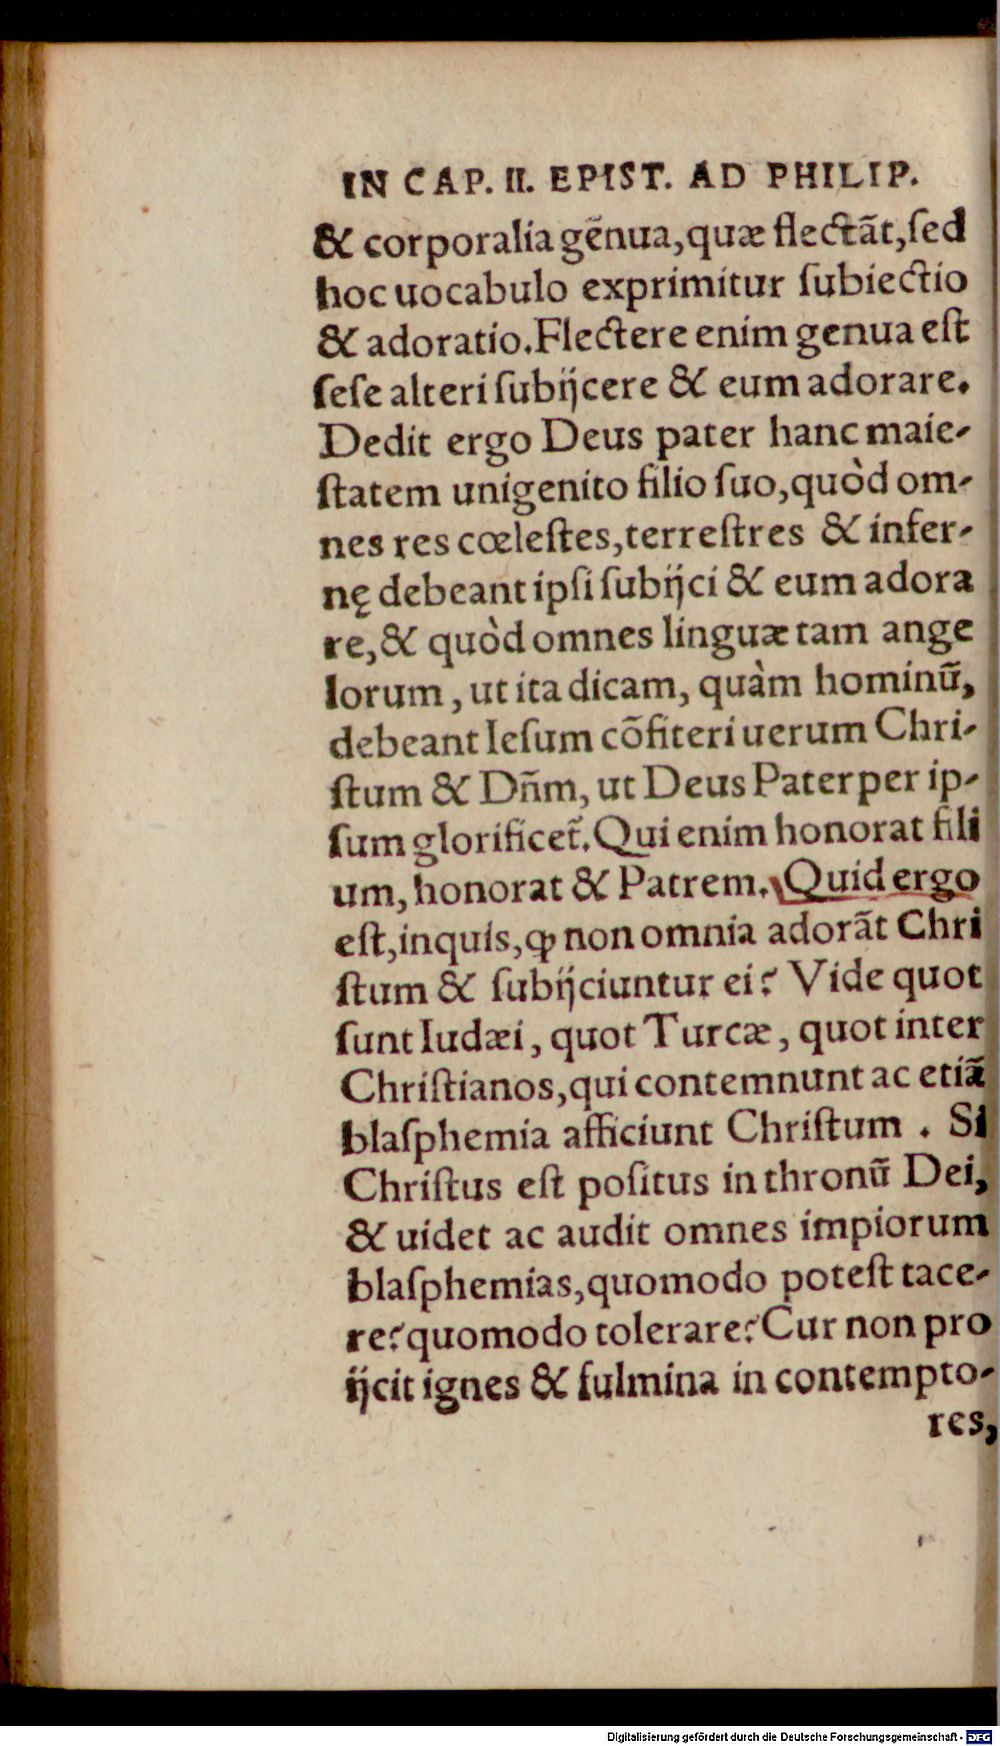 IN CAP. II. EPIST. AD PHILIP.
& corporalia gẽnua, quæ flectãt, ſed
hoc uocabulo exprimitur ſubiectio
& adoratio. Flectere enim genua eſt
ſeſe alteri ſubijcere & eum adorare.
Dedit ergo Deus pater hanc maie-
ſtatem unigenito filio ſuo, quòd om-
nes res cœleſtes, terreſtres & infer-
nę debeant ipſi ſubijci & eum adora
re, & quòd omnes linguæ tam ange
lorum, ut ita dicam, quàm hominũ,
debeant Ieſum cõfiteri uerum Chri-
ſtum & Dñm, ut Deus Pater per ip-
ſum glorificet̃. Qui enim honorat fili
um, honorat & Patrem. Quid ergo
eſt, inquis, ꝙ non omnia adorãt Chri
ſtum & ſubijciuntur ei? Vide quot
ſunt Iudæi, quot Turcæ, quot inter
Chriſtianos, qui contemnunt ac etiã
blaſphemia afficiunt Chriſtum. Si
Chriſtus eſt poſitus in thronũ Dei,
& uidet ac audit omnes impiorum
blaſphemias, quomodo poteſt tace-
re? quomodo tolerare? Cur non pro
ijcit ignes & fulmina in contempto-
res,
Digitalisierung gefördert durch die Deutsche Forschungsgemeinschaft - DFG